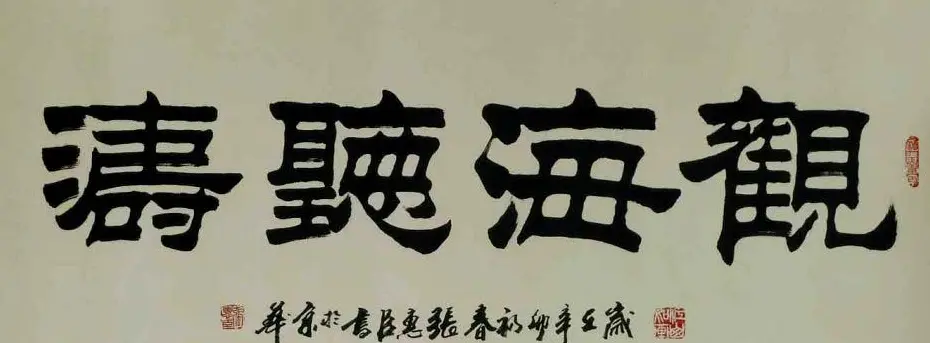 觀海聽濤
歲在辛卯初春張惠臣書於京華